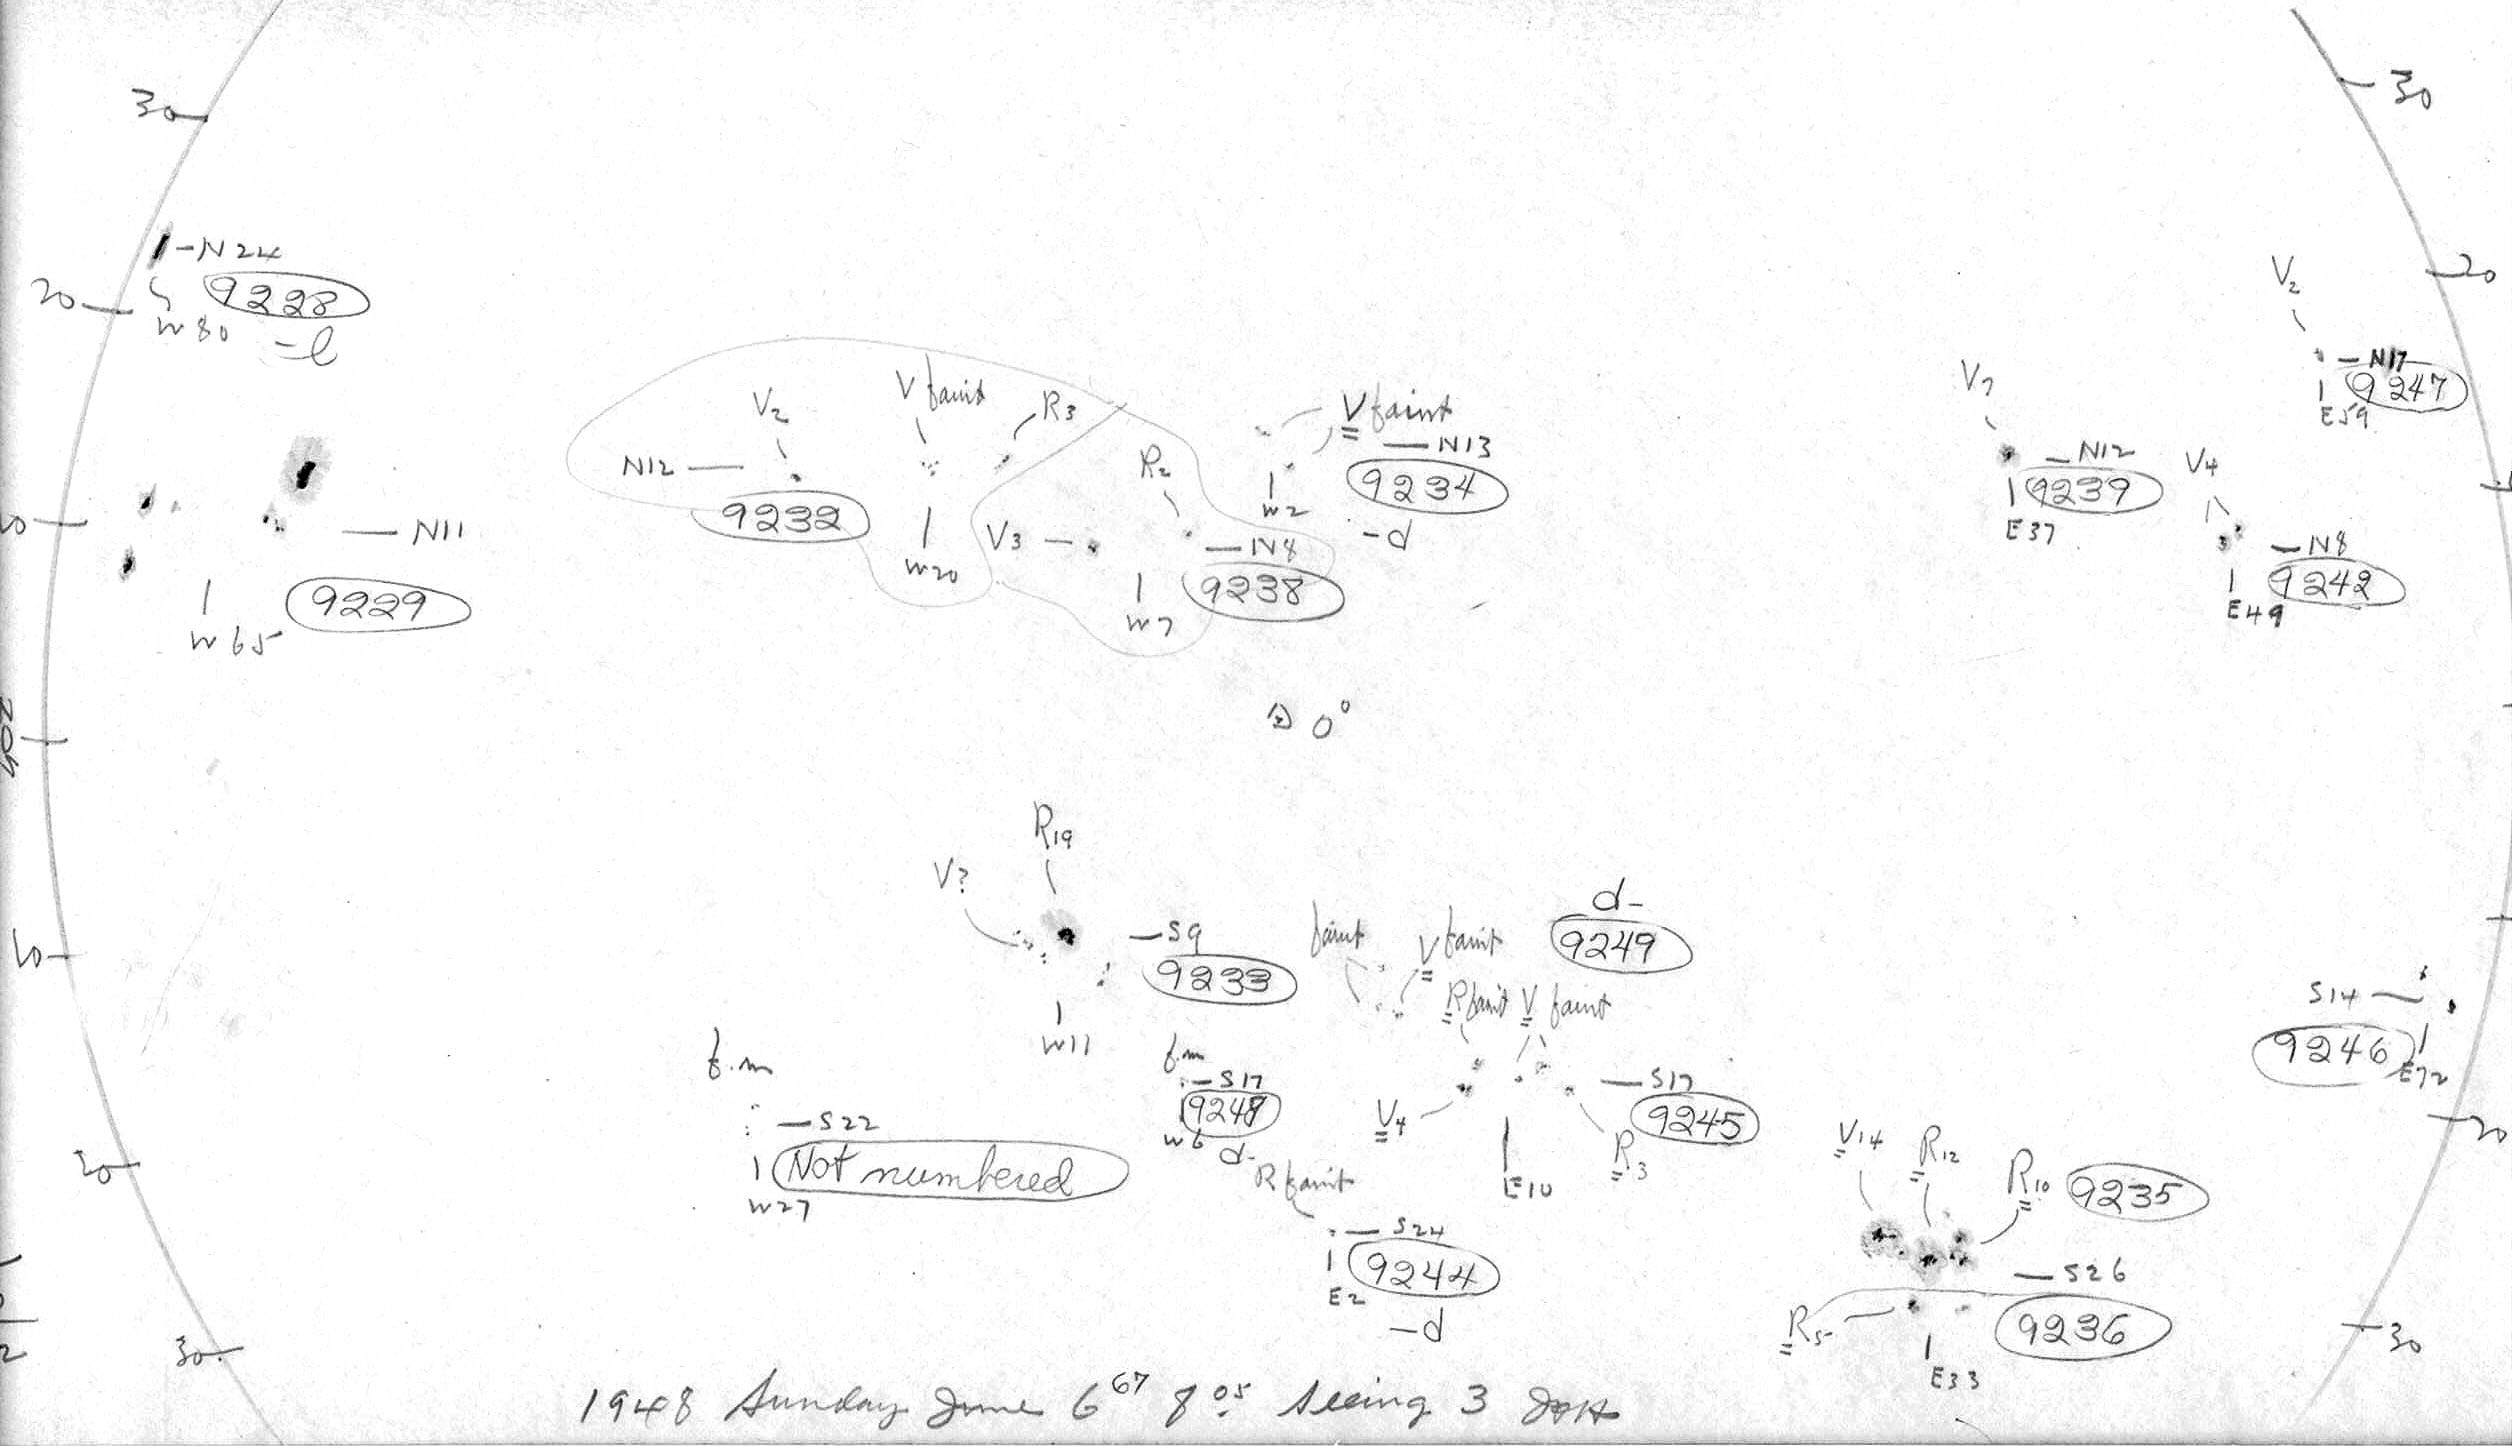 30
30
-N24
9228
W80
-l
20
20
V2
-N17
9247
E59
V?
-N12
9239
E37
V4
-N8
9242
E49
N12
V2
V faint
R3
9232
W20
V faint
-N13
9234
W2
-d
R2
V3
-N8
9238
W7
-N11
9229
W65
0°
R19
V?
-S9
9233
W11
faint
V faint
d-
9249
R faint
V faint
10
S14
9246
E72
f.m
-S22
Not numbered
W27
f.m
-S17
9248
W6
d-
V4
-S17
9245
E10
R3
20
20
R faint
-S24
9244
E2
-d
V14
R12
R10
9235
-S26
R5
9236
E33
30
30
1948 Sunday June 6 67 8 05 Seeing 3